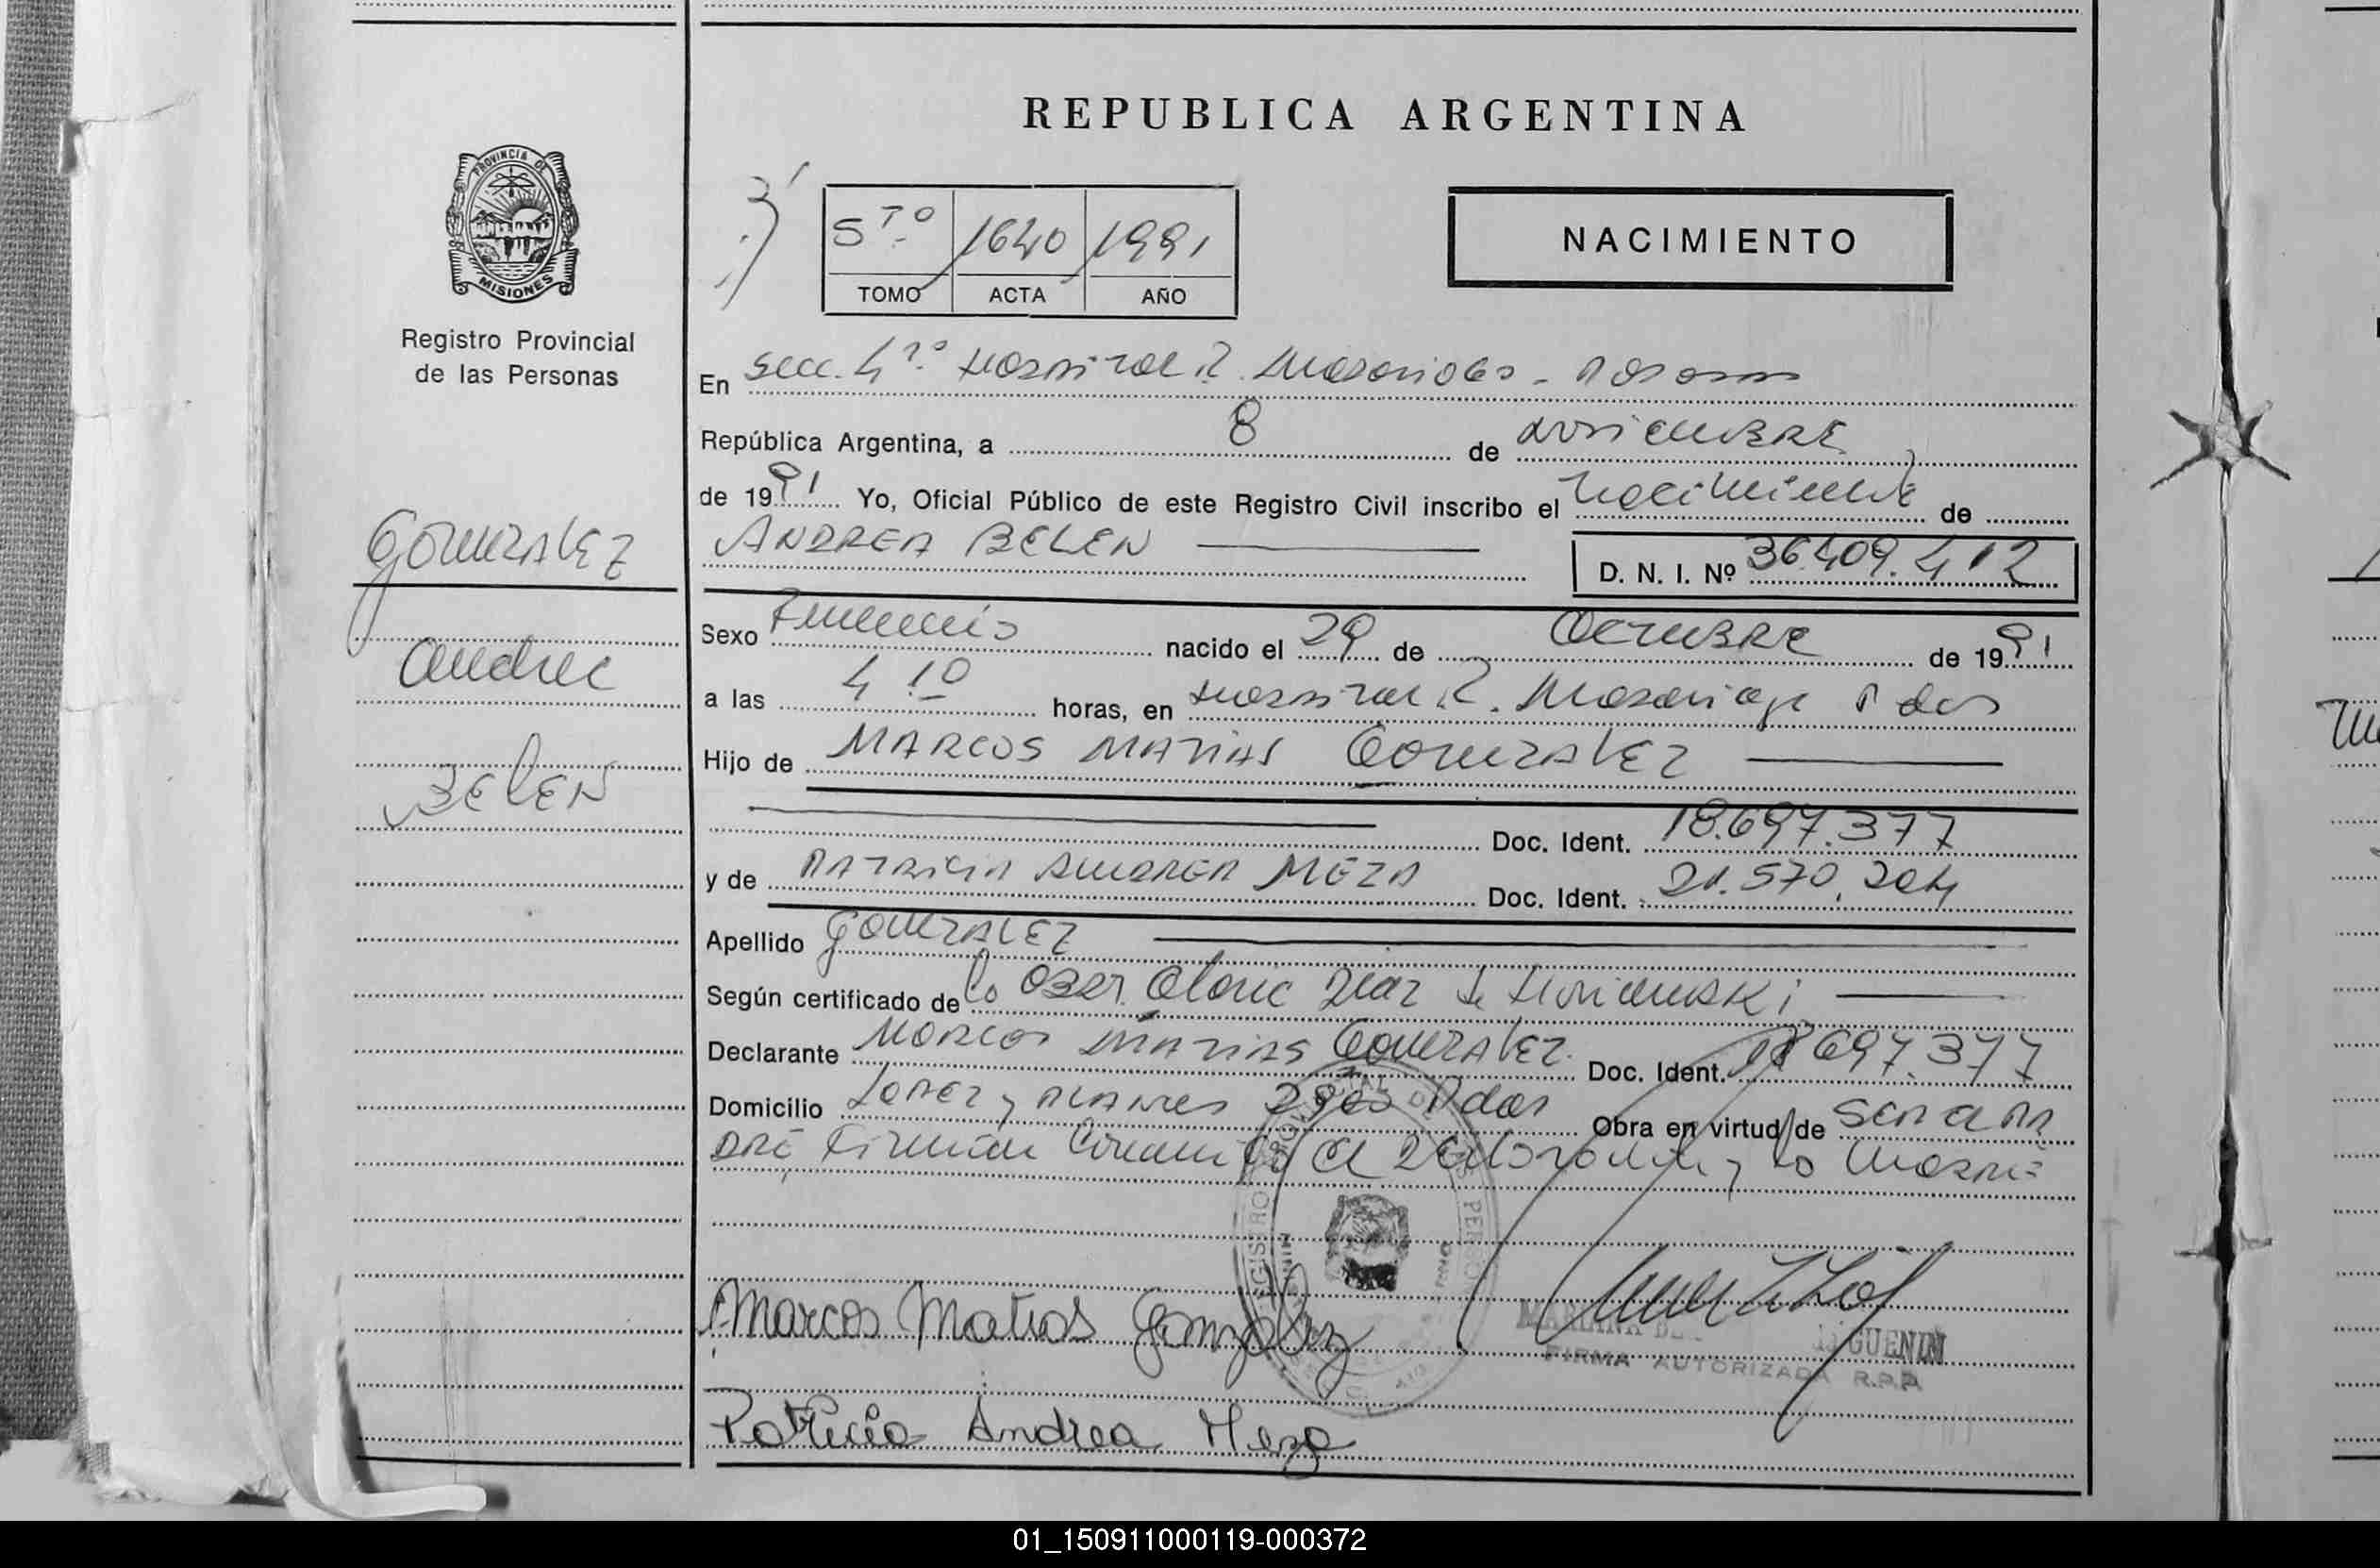 REPUBLICA ARGENTINA
PROVINCIA DE
MISIONES
Registro Provincial
de las Personas
5TO 1640 1991
TOMO ACTA AÑO
NACIMIENTO
En Secc. 4ta Hospital R. Madariaga - Posadas
República Argentina, a 8 de
de 1991 Yo, Oficial Público de este Registro Civil inscribo el nacimiento de
ANDREA BELEN
D. N. I. Nº 36.409.412
GONZALEZ
Andrea
BELEN
Sexo Femenino nacido el 29 de OCTUBRE de 1991
a las 4 10 horas, en Hospital R. Madariaga Pdas
Hijo de MARCOS MATIAS GONZALEZ
Doc. Ident. 18.697.377
y de PATRICIA ANDREA MEZA Doc. Ident. 21.570.204
Apellido GONZALEZ
Según certificado de la Obst. Diaz de
Declarante MARCOS MATIAS GONZALEZ Doc. Ident. 18.697.377
Domicilio LOPEZ y PLANES Pdas Obra en virtud de SER el PA
DRE Firman el y la Madre
Marcos Matias Gonzalez
FIRMA AUTORIZADA R.P.P.
Patricia Andrea Meza
01_150911000119-000372